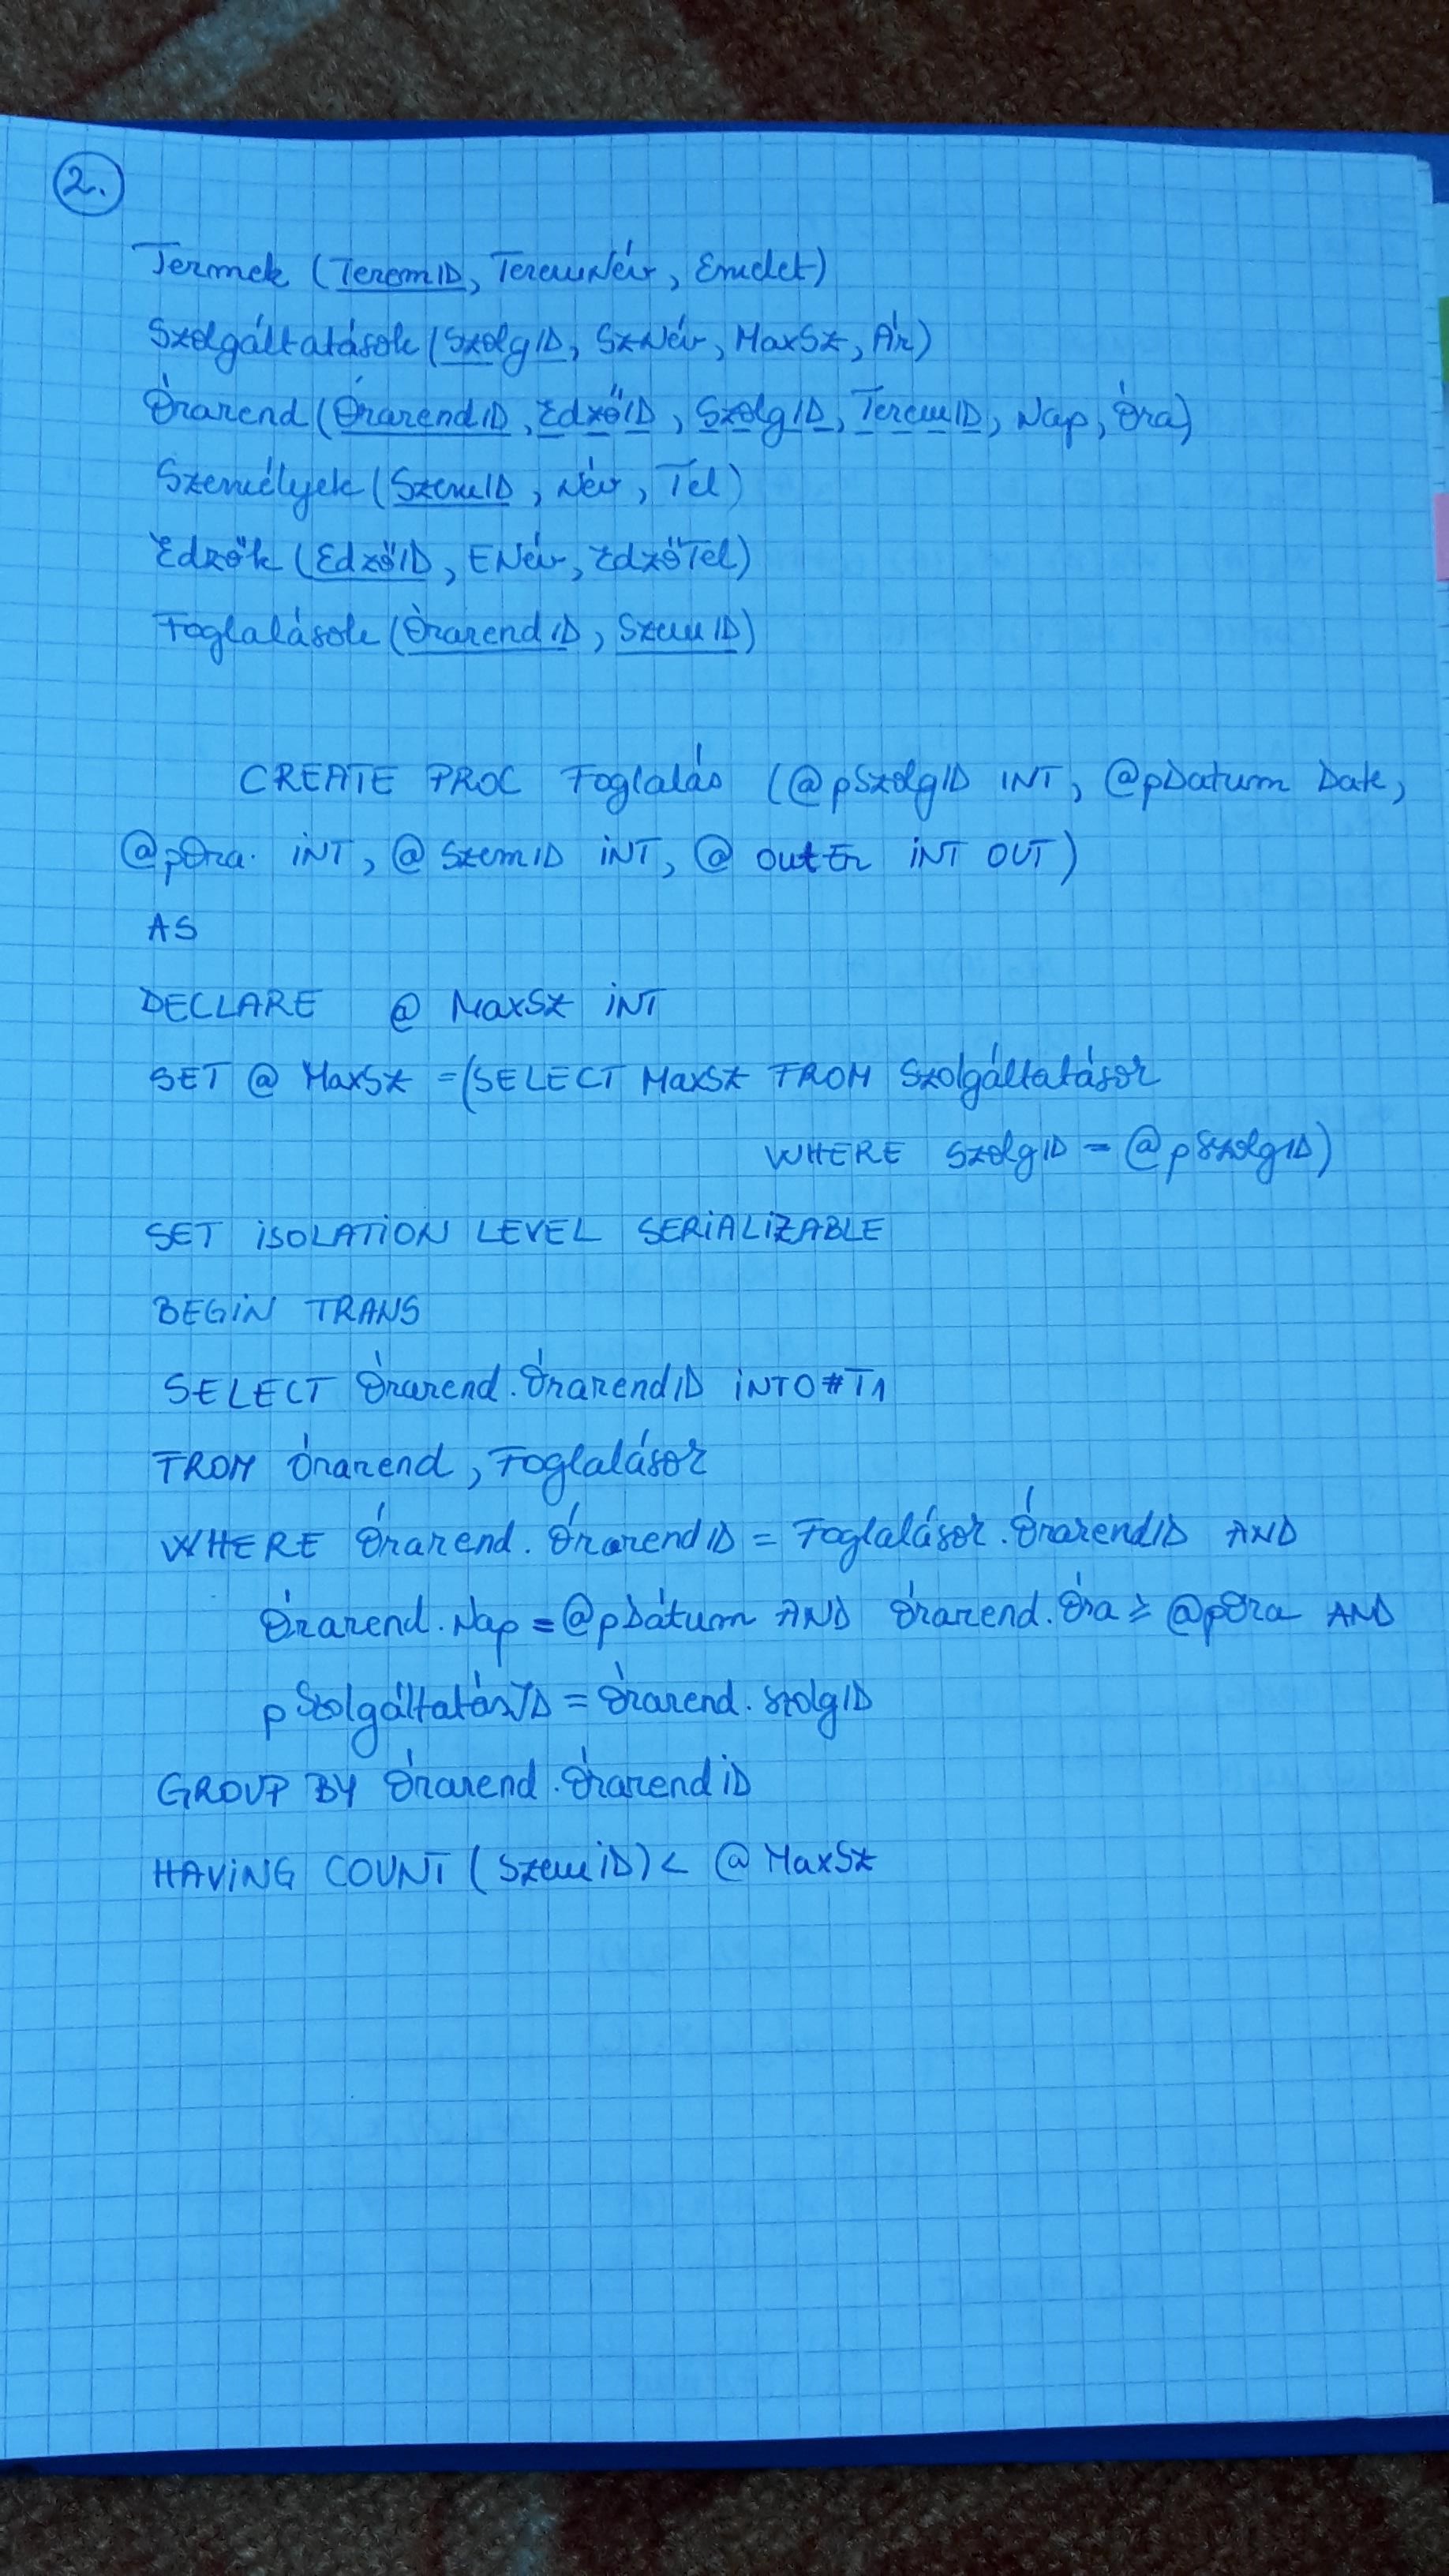 2.
Termek (TeremID, TeremNév, Emelet)
Szolgáltatások (SzolgID, SzNév, MaxSz, Ár)
Órarend (ÓrarendID, EdzőID, SzolgID, TeremID, Nap, Óra)
Személyek (SzemID, Név, Tel)
Edzők (EdzőID, ENév, EdzőTel)
Foglalások (ÓrarendID, SzemID)
CREATE PROC Foglalás (@pSzolgID INT, @pDatum Date,
@pOra INT, @SzemID INT, @outEr INT OUT)
AS
DECLARE @MaxSz INT
SET @MaxSz = (SELECT MaxSz FROM Szolgáltatások
WHERE SzolgID = @pSzolgID)
SET ISOLATION LEVEL SERIALIZABLE
BEGIN TRANS
SELECT Órarend.ÓrarendID INTO #T1
FROM Órarend, Foglalások
WHERE Órarend.ÓrarendID = Foglalások.ÓrarendID AND
Órarend.Nap = @pDátum AND Órarend.Óra ≥ @pOra AND
pSzolgáltatásID = Órarend.SzolgID
GROUP BY Órarend.ÓrarendID
HAVING COUNT (SzemID) < @MaxSz